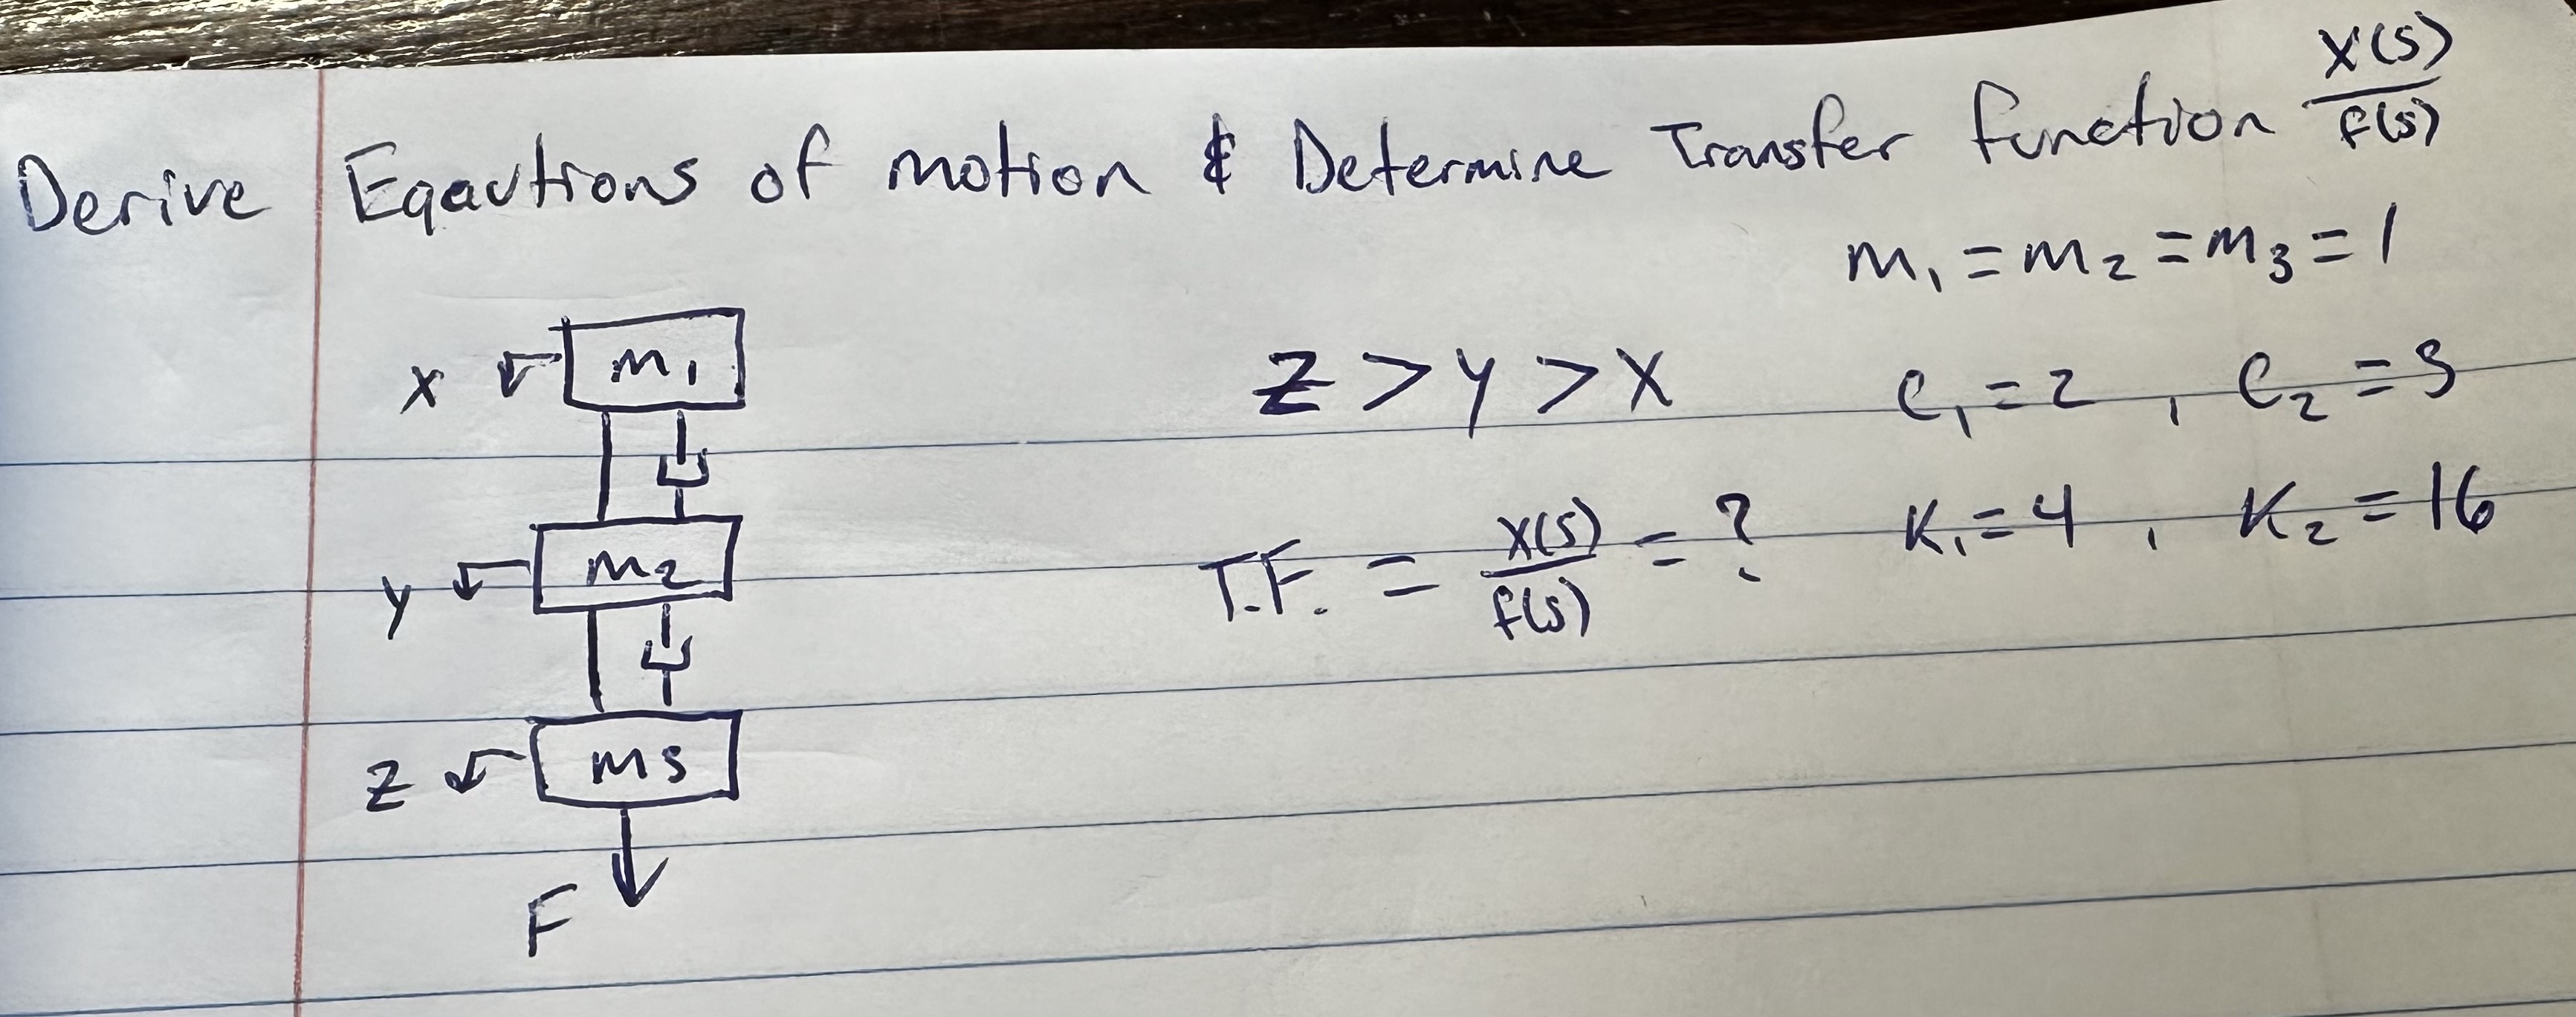 Derive Eqautions of motion & Determine Transfer function X(s)/f(s)
m₁ = m₂ = m₃ = 1
x m₁ z > y > x c₁ = 2 , c₂ = 3
y m₂ T.F. = X(s)/f(s) = ? K₁ = 4 , K₂ = 16
z m3
F